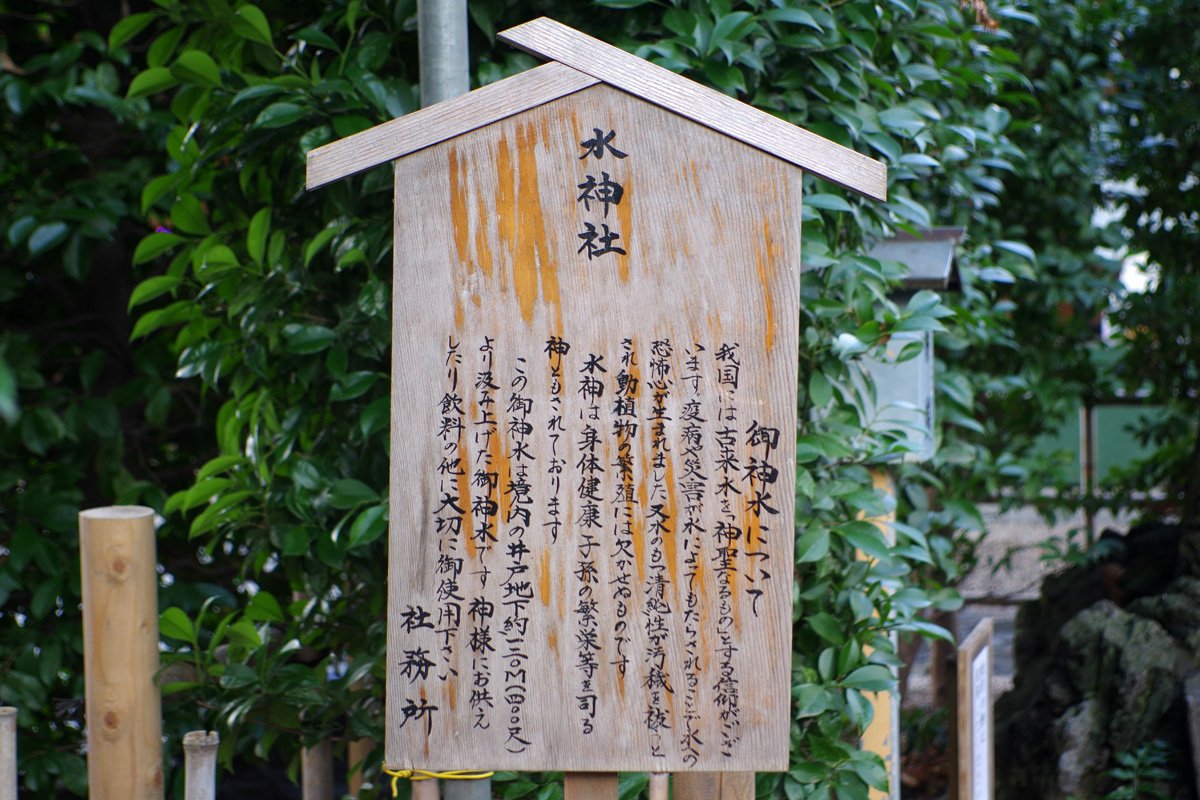 水神社
御神水について
我国には古来水を「神聖なるもの」とする信仰がござ
います。疫病や災害が水によってもたらされることで水への
恐怖心が生まれました又水のもつ清純性が汚穢を祓うと
され動植物の繁殖には欠かせぬものです
水神は身体健康子孫の繁栄等を司る
神ともされております
この御神水は境内の井戸地下約一二〇M(四〇〇尺)
より汲み上げた御神水です 神様にお供え
したり飲料の他に大切に御使用下さい
社務所